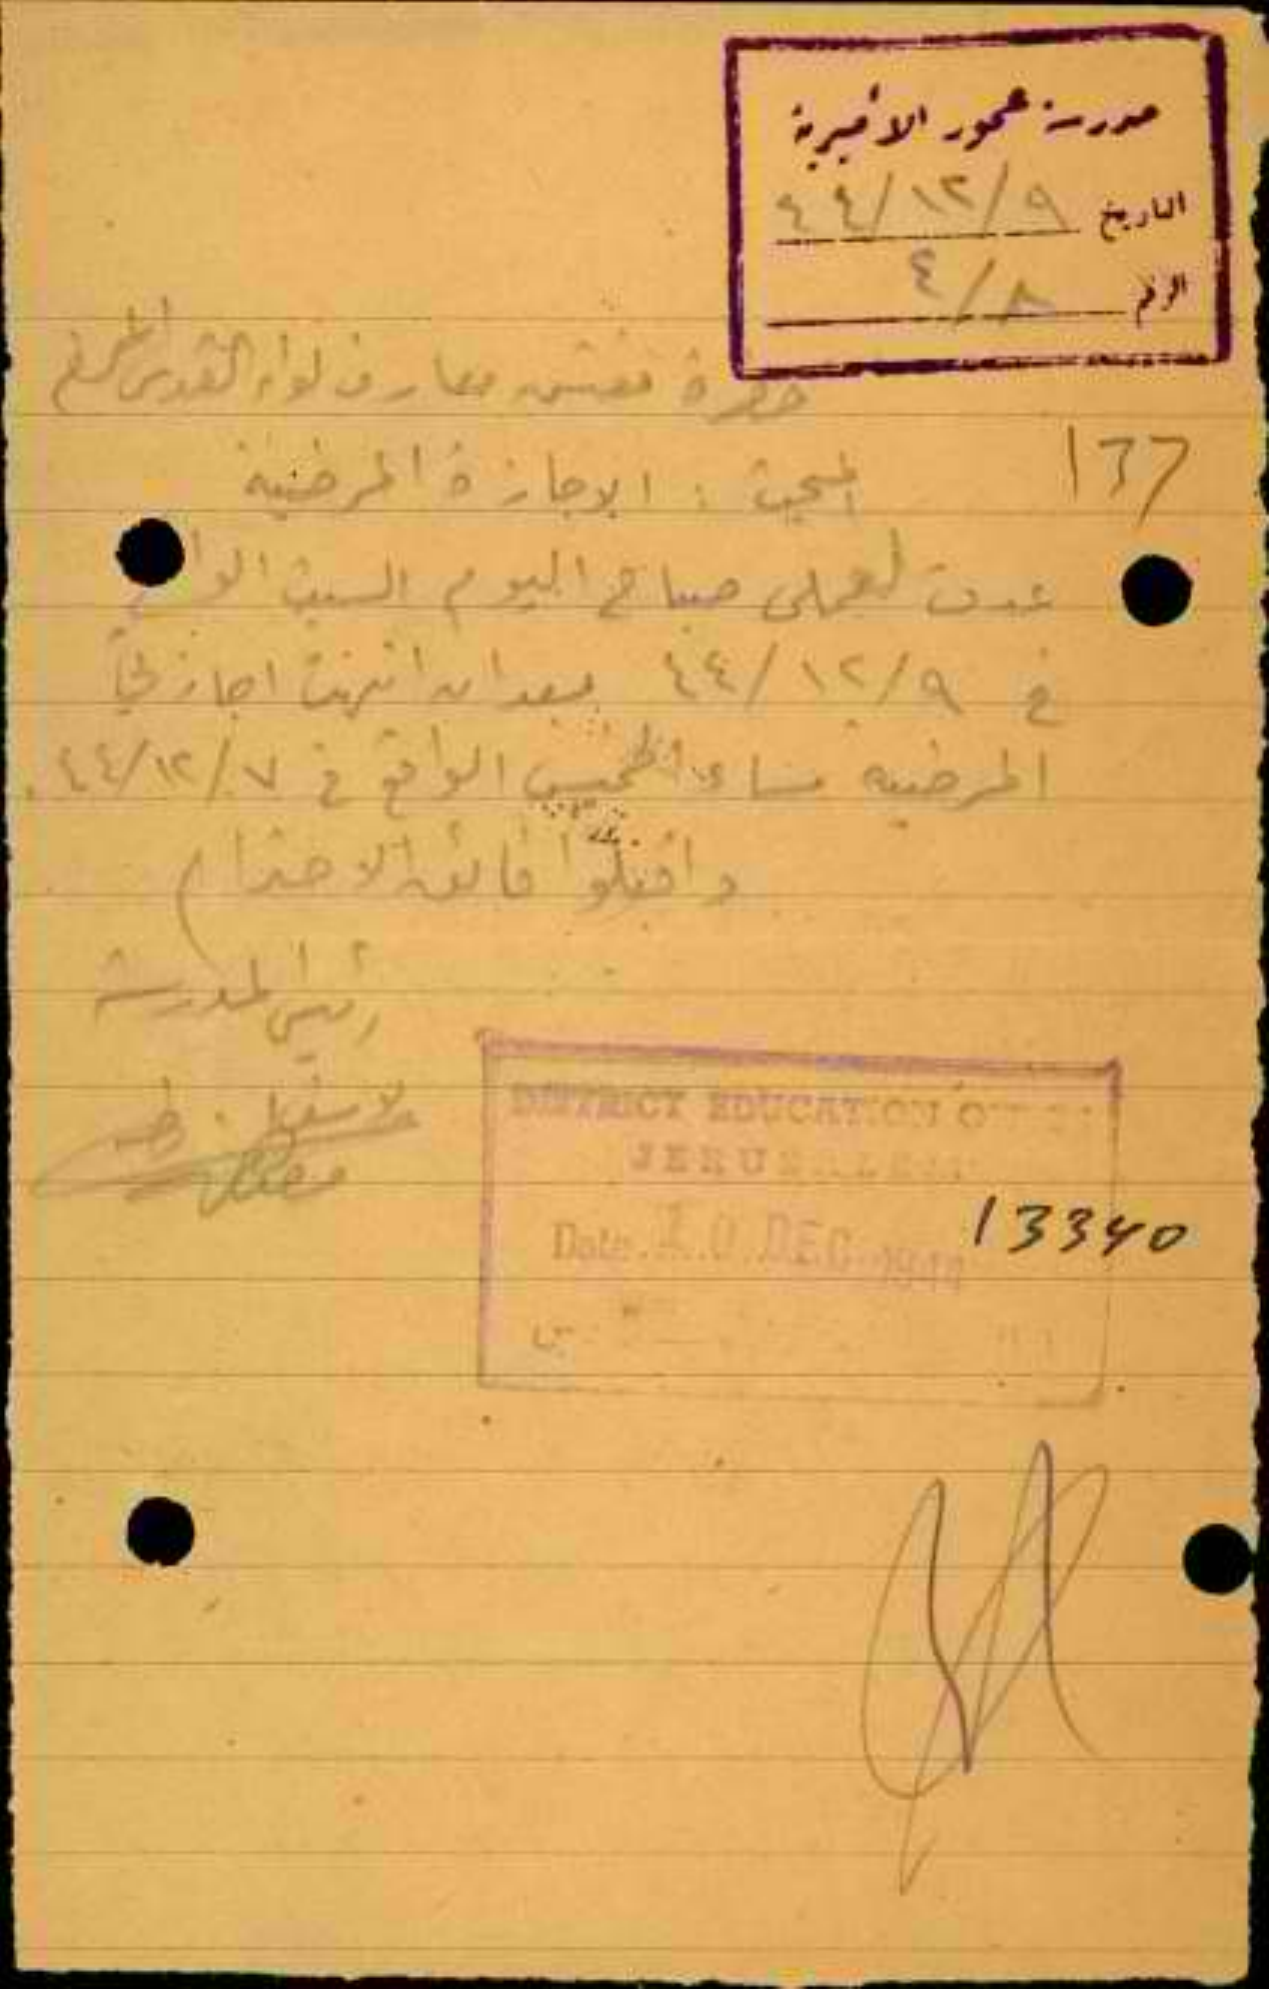 مدرسة عجور الاميرية
التاريخ ٩/١٢/٤٤
الرقم ٤/٨
حضرة مفتش معارف لواء القدس المحترم
137
المبحث : الاجازة المرضية
عدت لعملي صباح اليوم السبت الواقع
في ٩/١٢/٤٤ بعد ان انتهت اجازتي
المرضية مساء الخميس الواقع في ٧/١٢/٤٤.
واقبلوا فائق الاحترام
رئيس المدرسة
DISTRICT EDUCATION
JERUSALEM
13340
Date 10 DEC 1944